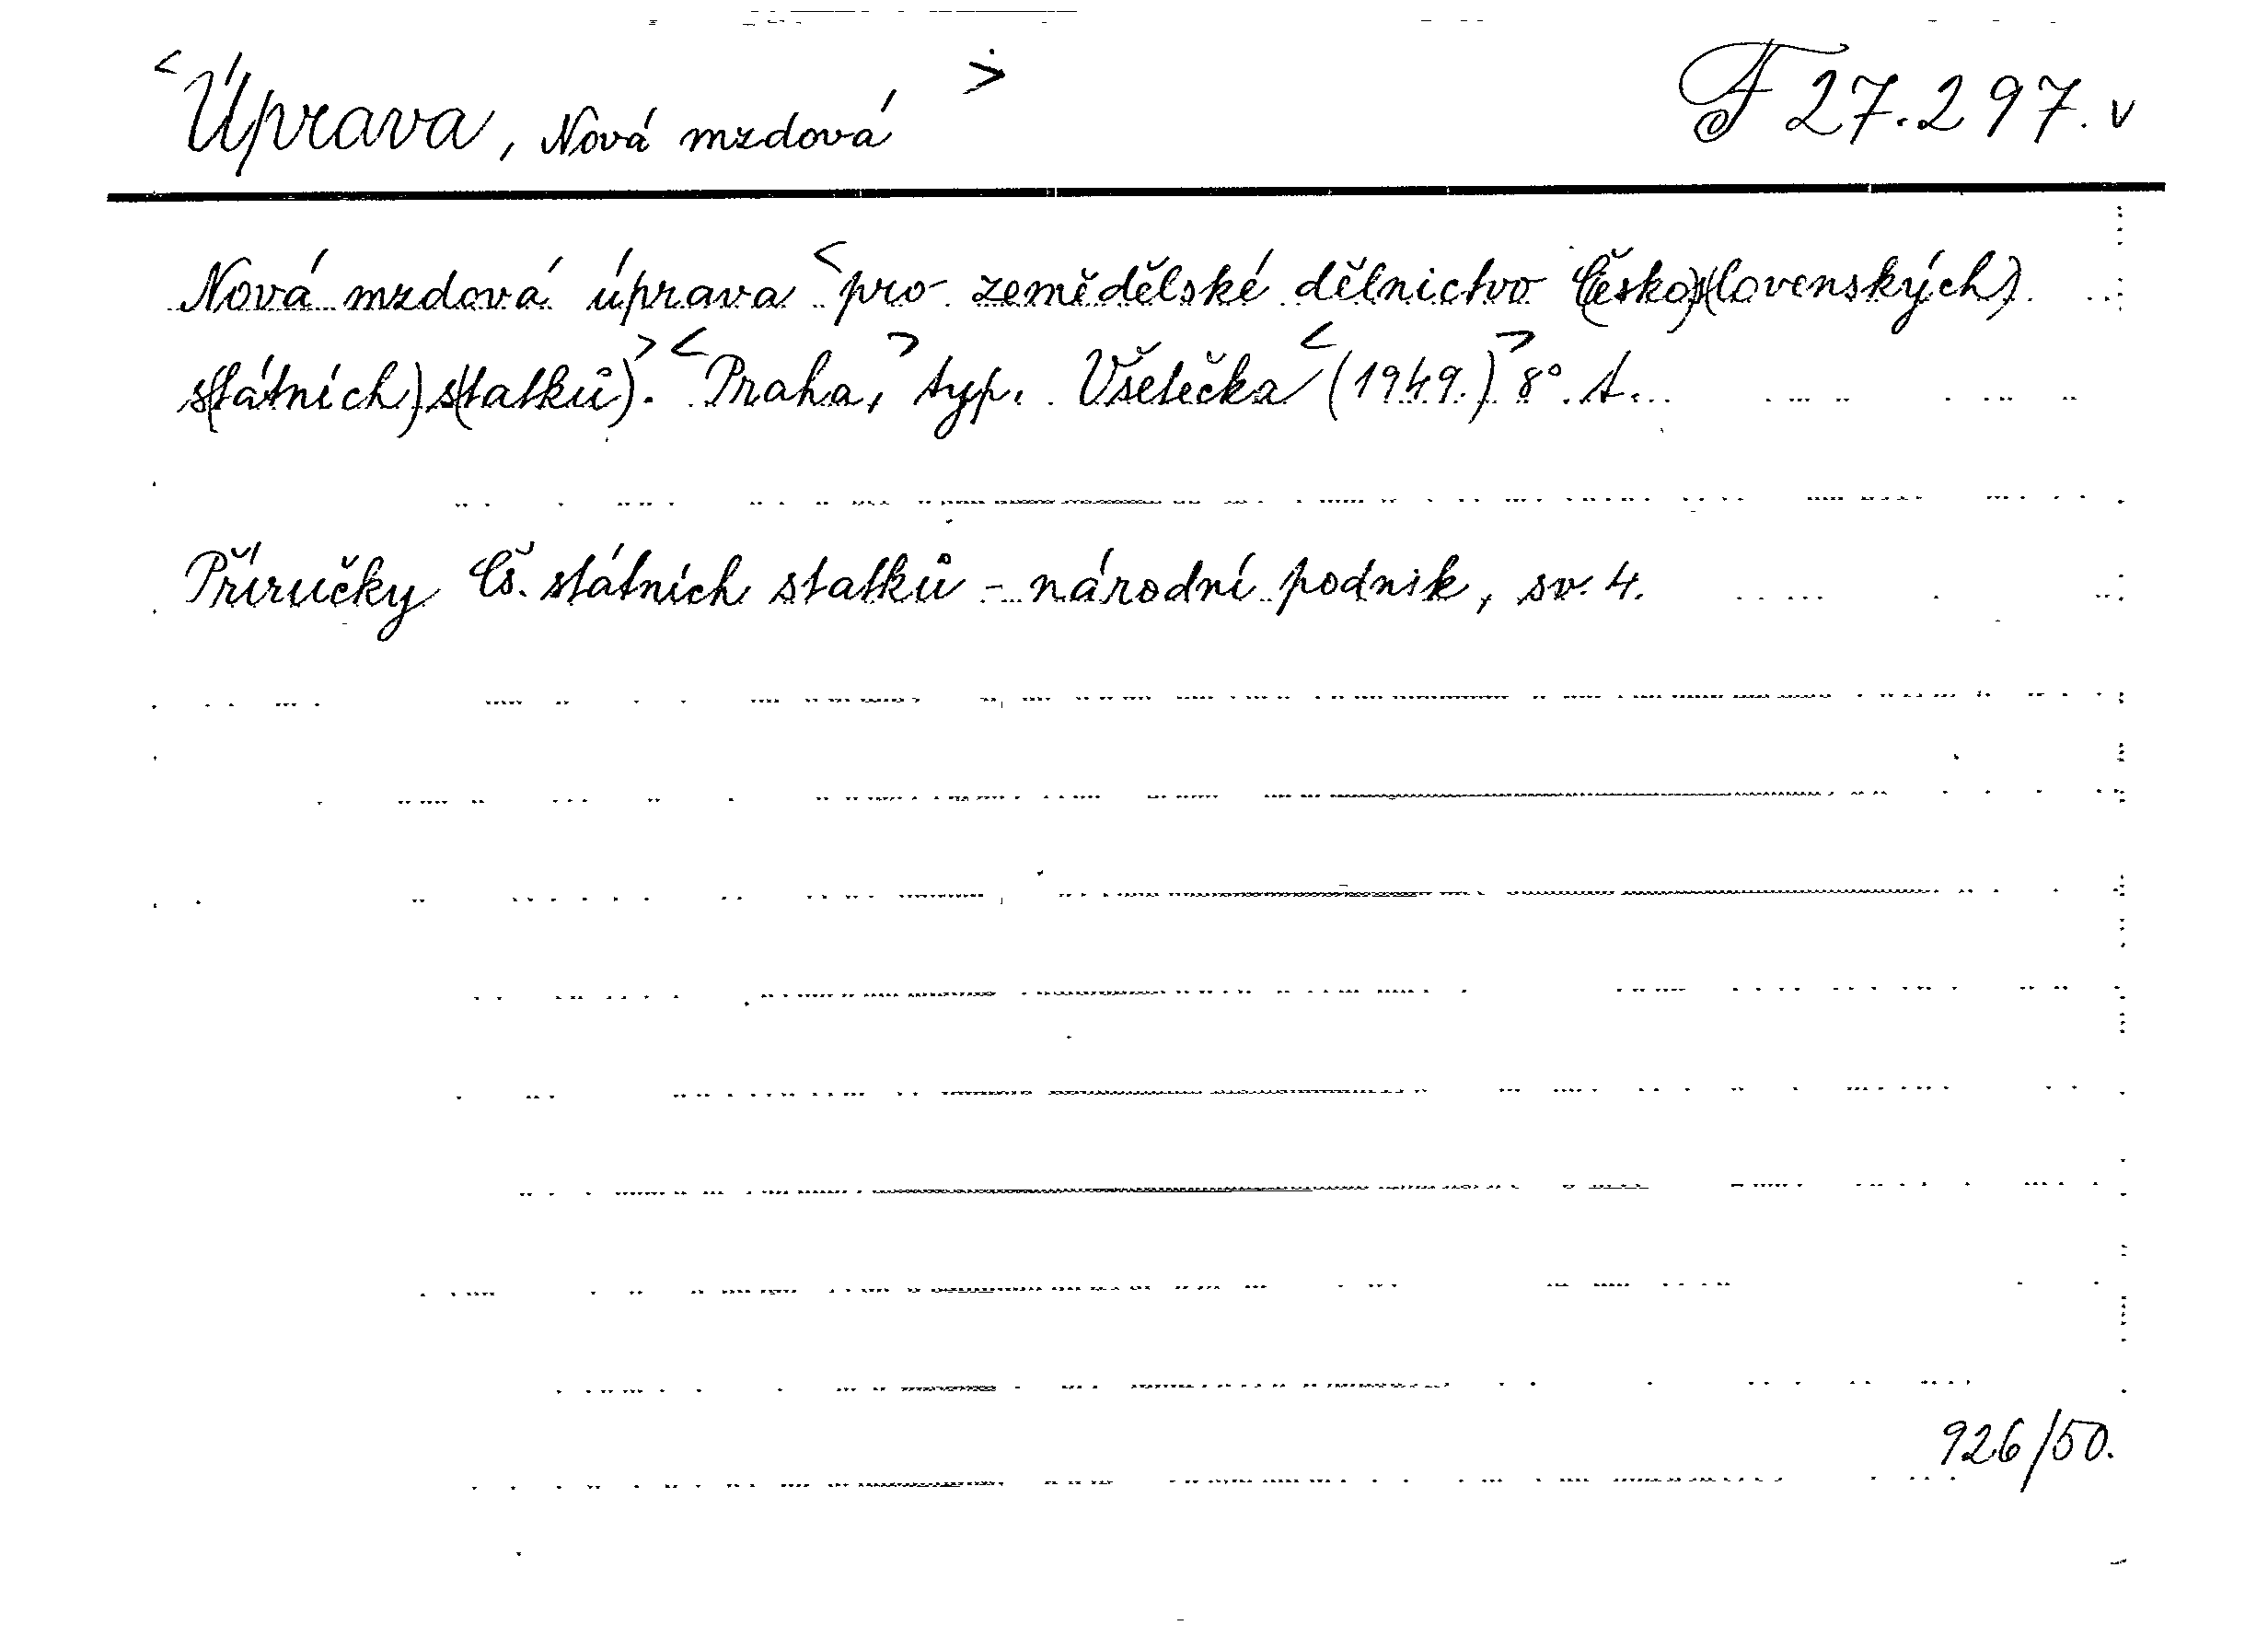 <Úprava, Nová mzdová> F 27.297. v
Nová mzdová úprava <pro zemědělské dělnictvo Č(esko)s(lovenských)
s(tátních) s(tatků).> <Praha,> typ. Všetečka <(1949.)> 8°. A.
Příručky Čs. státních statků - národní podnik, sv. 4.
926/50.